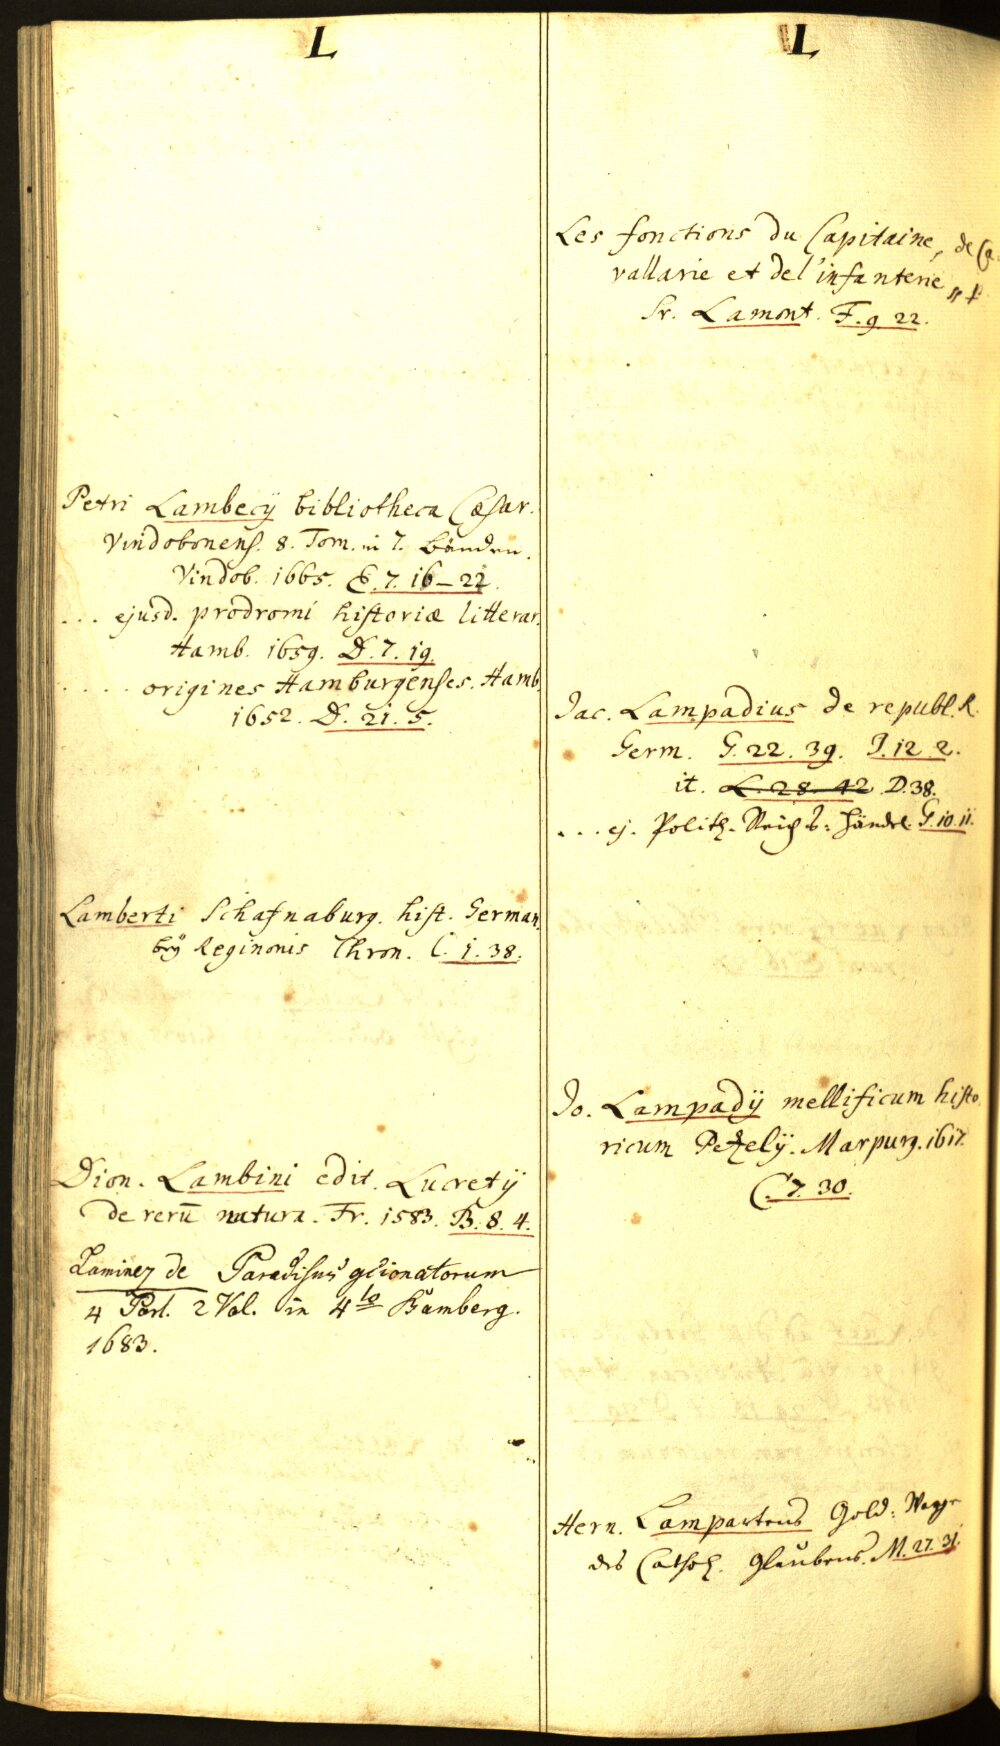 L
Petri Lambecÿ bibliotheca Cæsar.
Vindobonens. 8. Tom. in 7. bänden.
Vindob. 1665. E. 7. 16–22.
... ejusd. prodromi historiæ litterar.
Hamb. 1659. D. 7. 19.
.... origines Hamburgenses. Hamb.
1652. D. 21. 5.
Lamberti Schafnaburg. hist. German.
beÿ Reginonis Chron. C. 1. 38.
Dion. Lambini edit. Lucretÿ
de rerū natura. Fr. 1583. B. 8. 4.
Laminez de Paradisus
4 Part. 2 Vol. in 4to Bamberg.
1683.
L
Les fonctions du Capitaine, de Ca-
vallarie et de l'infanterie
Sr. Lamont. F. 9 22.
Jac. Lampadius de republ. R.
Germ. G. 22. 39. J. 12 2.
it. L. 28. 42 D. 38.
... ej. Polith. Reichs-händel G. 10. 11.
Jo. Lampadÿ mellificum histo
ricum Pezelÿ. Marpurg. 1617.
C. 7. 30.
Hern. Lampartens Gold: Wage
des Cathol. Glaubens. M. 27. 31.